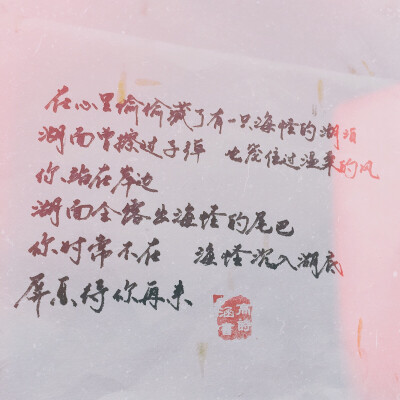 在心里偷偷藏了有一只海怪的湖泊
湖面曾擦过子弹 也笼住过温柔的风
你站在岸边
湖面会露出海怪的尾巴
你时常不在 海怪沉入湖底
屏息待你再来
高诗
涵書